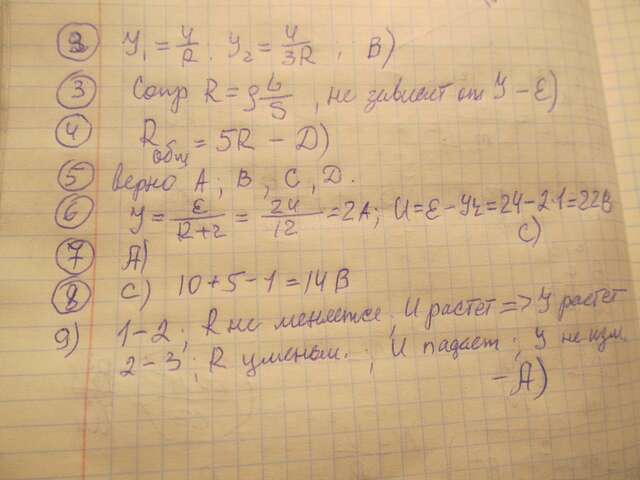 2 У₁ = У/R. У₂ = У/3R ; В)
3 Сопр R = ρ L/S , не зависит от У – Е)
4 Rобщ = 5R – D)
5 верно А ; В , С , D.
6 У = ε/R+r = 24/12 = 2А ; U = ε – Уr = 24 – 2·1 = 22В
С)
7 А)
8 С) 10 + 5 – 1 = 14 В
9) 1 – 2 ; R не меняется ; U растет => У растет
2 – 3 ; R уменьш. ; U падает ; У не изм.
– А)